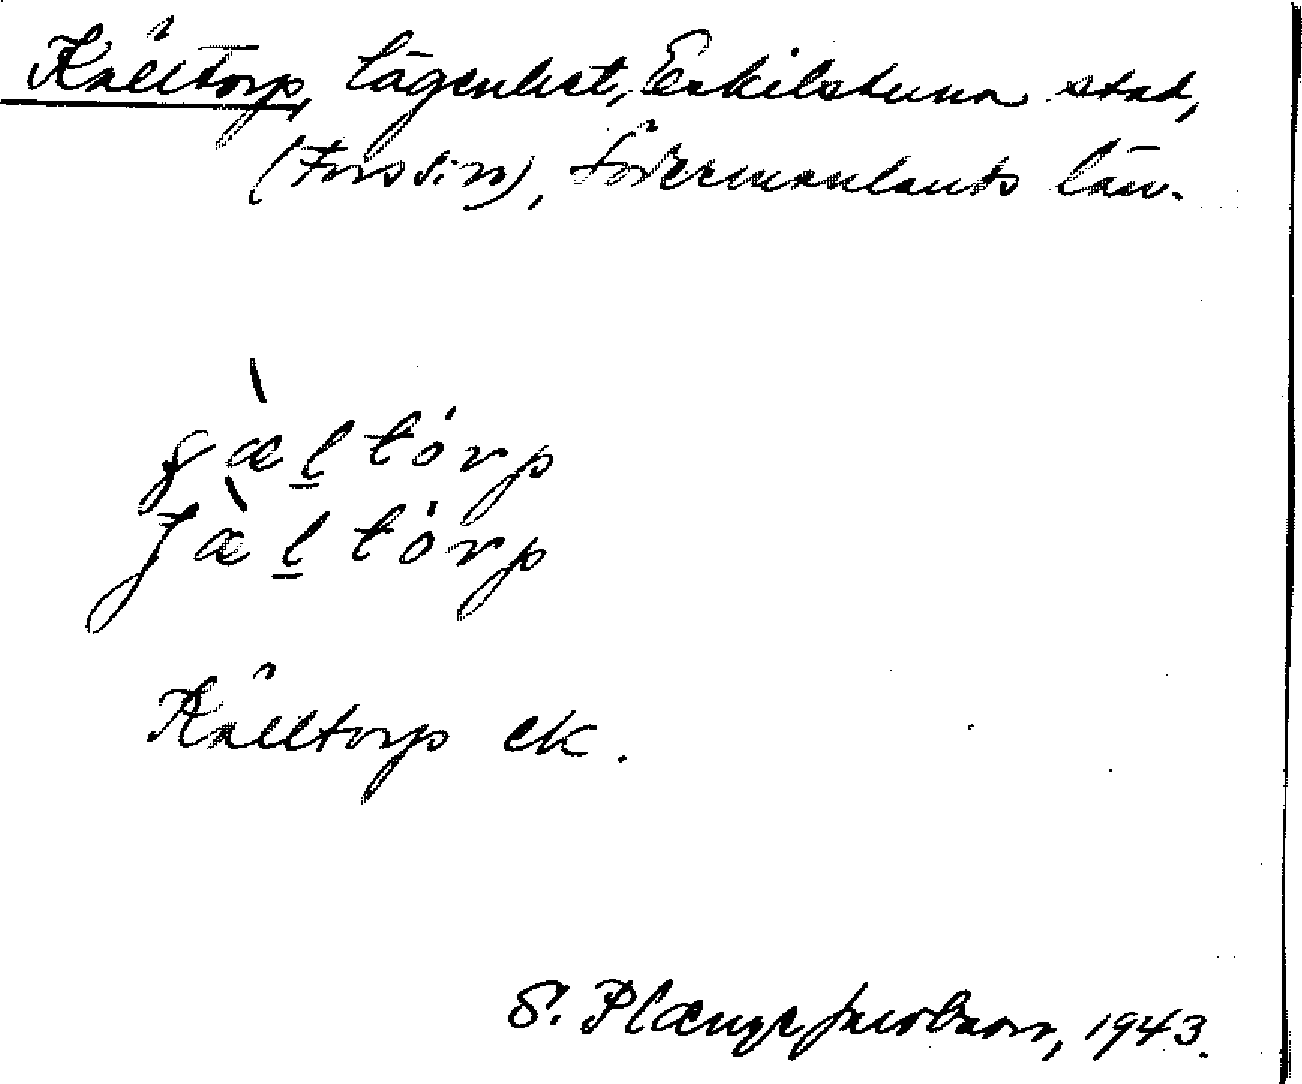 Källtorp, lägenhet, Eskilstuna stad,
(Fors s:n), Södermanlands län.
ɡæ̀l̠tórp
ʃæ̀l̠tórp
Källtorp ek.
S. Plænge Jacobson, 1943.